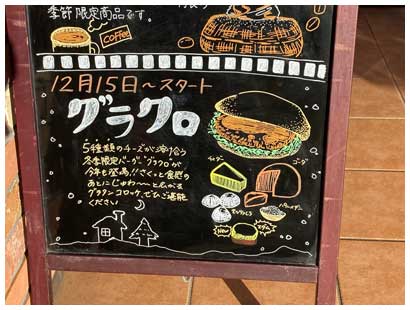 季節限定商品です。
Coffee
12月15日～スタート
グラクロ
5種類のチーズが溶け合う
冬季限定バーガー"グラクロ"が
今年も登場!!さくっと食感の
あとにじゅわ～～と広がる
グラタンコロッケ、ぜひご堪能
ください♪
チェダー
ゴーダ
モッツァレラ
パルメザン
New
エダム